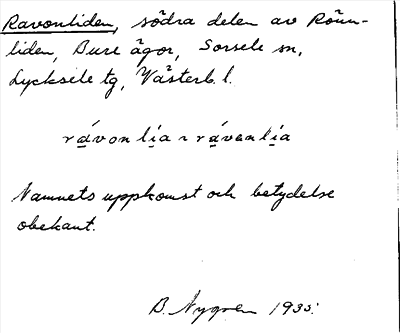 Ravonliden, södra delen av Rönn-
liden, Bure ägor, Sorsele sn,
Lycksele tg, Västerb. l.
rávon lía ~ ráven lía
Namnets uppkomst och betydelse
obekant.
B. Nygren 1935.